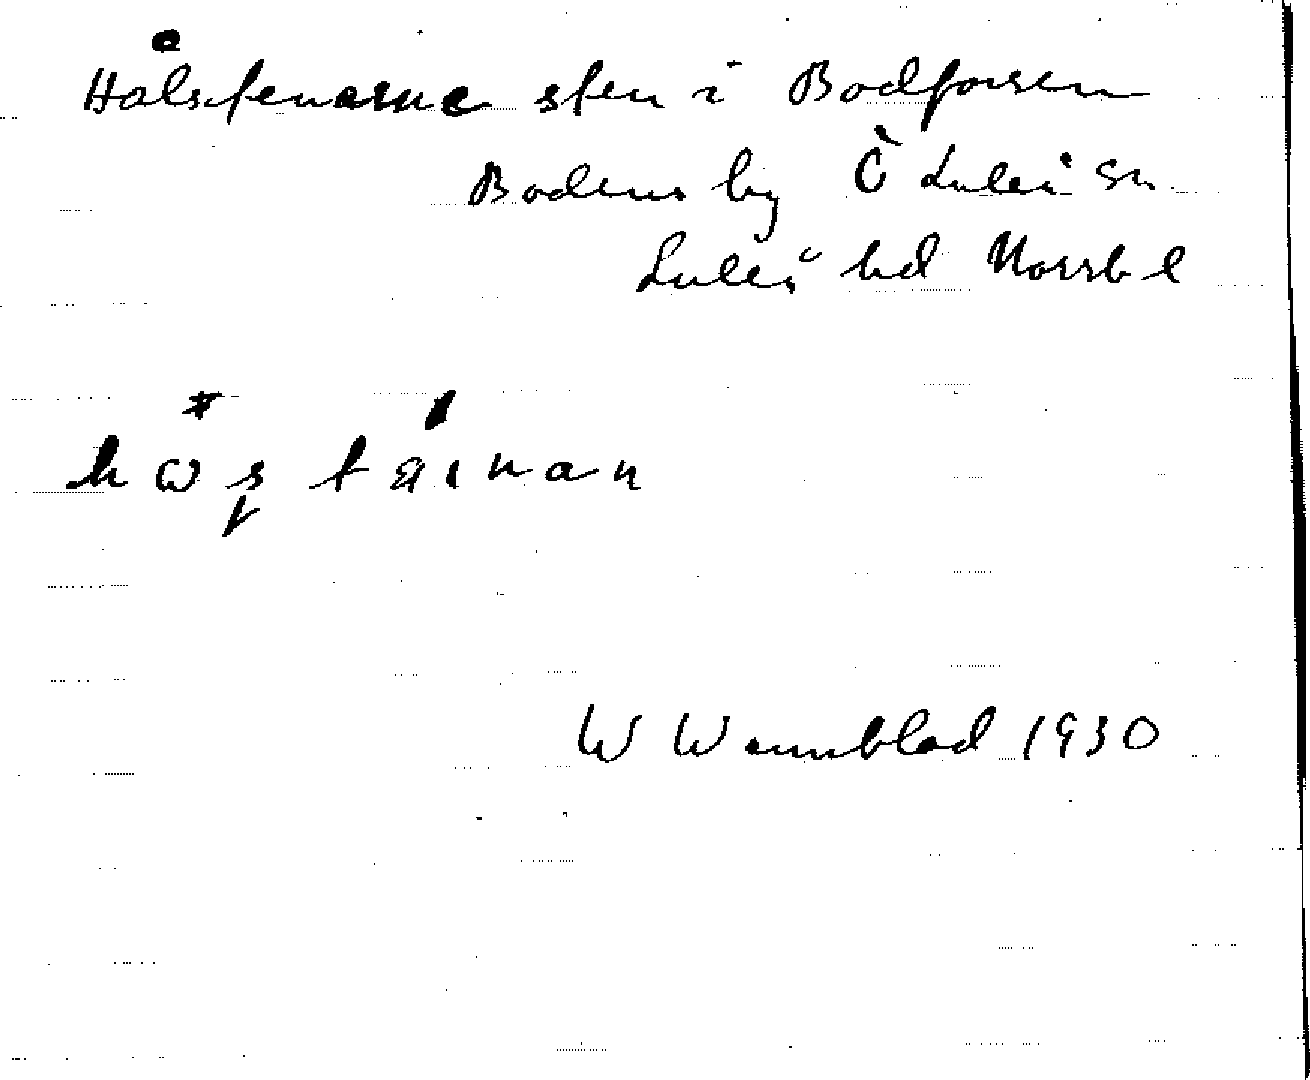 Hålstenarne sten i Bodforsen
Bodens by Ö Luleå sn
Luleå hd Norrb l
W Wennblad 1930